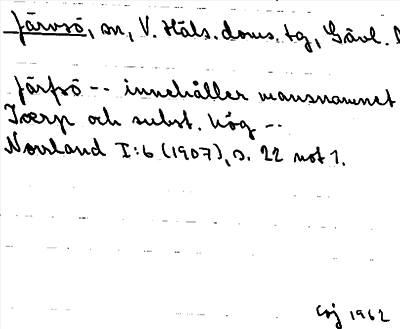 Järvsö, sn, V. Häls. doms. tg, Gävl. l
Järfsö -- innehåller mansnamnet
Iærp och subst. hög --
Norrland I:6 (1907), s. 22 not 1.
Gj 1962